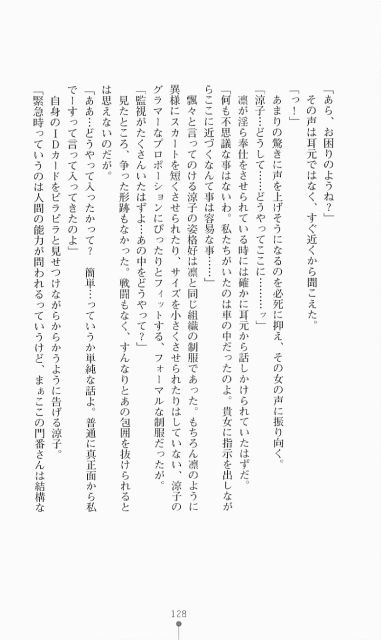 「あら、お困りのようね？」
その声は耳元ではなく、すぐ近くから聞こえた。
「っ！」
あまりの驚きに声を上げそうになるのを必死に抑え、その女の声に振り向く。
「涼子…どうして……どうやってここに………ッ」
凛が淫ら奉仕をさせられている時には確かに耳元から話しかけられていたはずだ。
「何も不思議な事はないわ。私たちがいたのは車の中だったのよ。貴女に指示を出しなが
らここに近づくなんて事は容易な事……」
飄々と言ってのける涼子の姿格好は凛と同じ組織の制服であった。もちろん凛のように
異様にスカートを短くさせられたり、サイズを小さくさせられたりはしていない、涼子の
グラマーなプロポーションにぴったりとフィットする、フォーマルな制服だったが。
「監視がたくさんいたはずよ…あの中をどうやって？」
見たところ、争った形跡もなかった。戦闘もなく、すんなりとあの包囲を抜けられると
は思えないのだが。
「ああ…どうやって入ったかって？　簡単…っていうか単純な話よ。普通に真正面から私
でーすって言って入ってきたのよ」
自身のＩＤカードをピラピラと見せつけながらからかうように告げる涼子。
「緊急時っていうのは人間の能力が問われるっていうけど、まぁここの門番さんは結構な
128